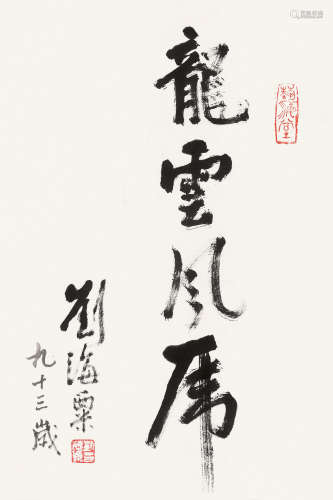 龍雲风虎
劉海粟
九十三歲